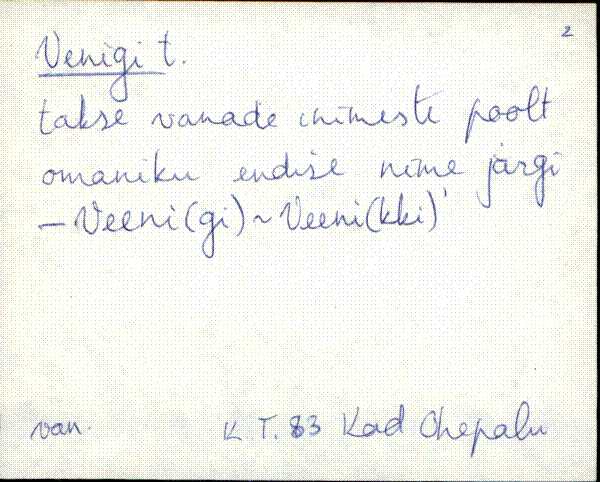 2
Venigi t.
takse vanade inimeste poolt
omaniku endise nime järgi
– Veeni(gi) ~ Veeni(kki)'
van. K T. 83 Kad Ohepalu